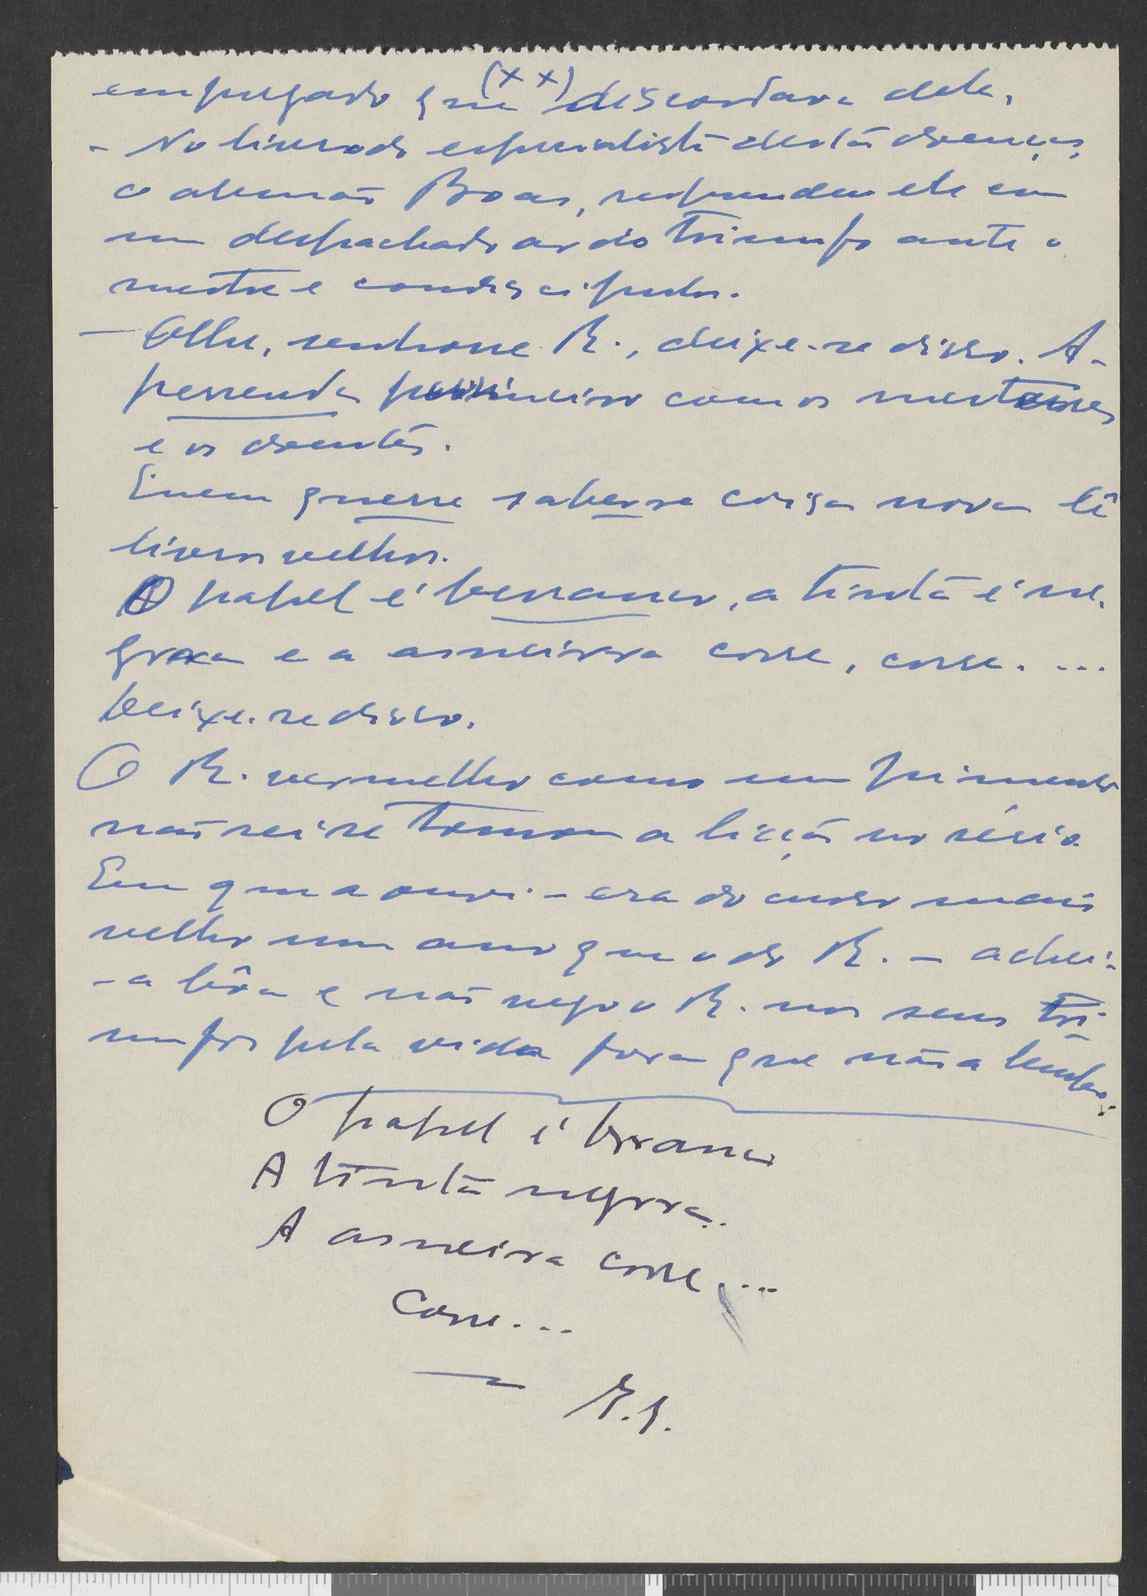 empregado que (x x) discordara dele,
- No livro do especialista destas doenças,
o alemão Boas, respondeu ele com
um despachado ar do triumfo ante o
mestre e condiscipulos.
- Olhe, senhorre R., deixe-se disso. A-
perrenda primeiro com os mestrres
e os doentes.
Quem querre saberre coisa nova lê
livros velhos.
O papel é berranco, a tinta é ne-
grra e a asneirra corre, corre. ...
Deixe-se disso.
O R. vermelho como um pimento
não sei se tomou a licção no sério.
Eu que a ouvi - era do curso mais
velho um ano que o do R. - achei-
-a bôa e não nego o R. nos seus tri-
umfos pela vida fora que não a lembro.
O papel é brranco
A tinta negrra.
A asneira corre, ...
Corre...